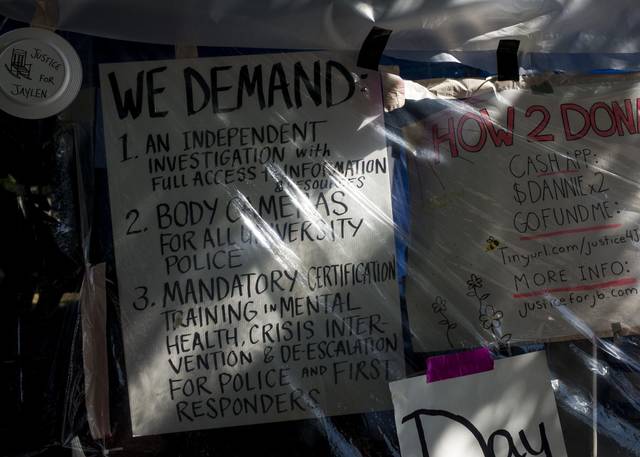 JUSTICE
FOR
JAYLEN
WE DEMAND:
1. AN INDEPENDENT
INVESTIGATION with
FULL ACCESS to INFORMATION
& RESOURCES
2. BODY CAMERAS
FOR ALL UNIVERSITY
POLICE
3. MANDATORY CERTIFICATION
TRAINING IN MENTAL
HEALTH, CRISIS INTER-
VENTION & DE-ESCALATION
FOR POLICE AND FIRST
RESPONDERS
HOW 2 DONA
CASH APP:
$DANNIEx2
GOFUNDME:
Tinyurl.com/justice4J
MORE INFO:
justiceforjb.com
Day